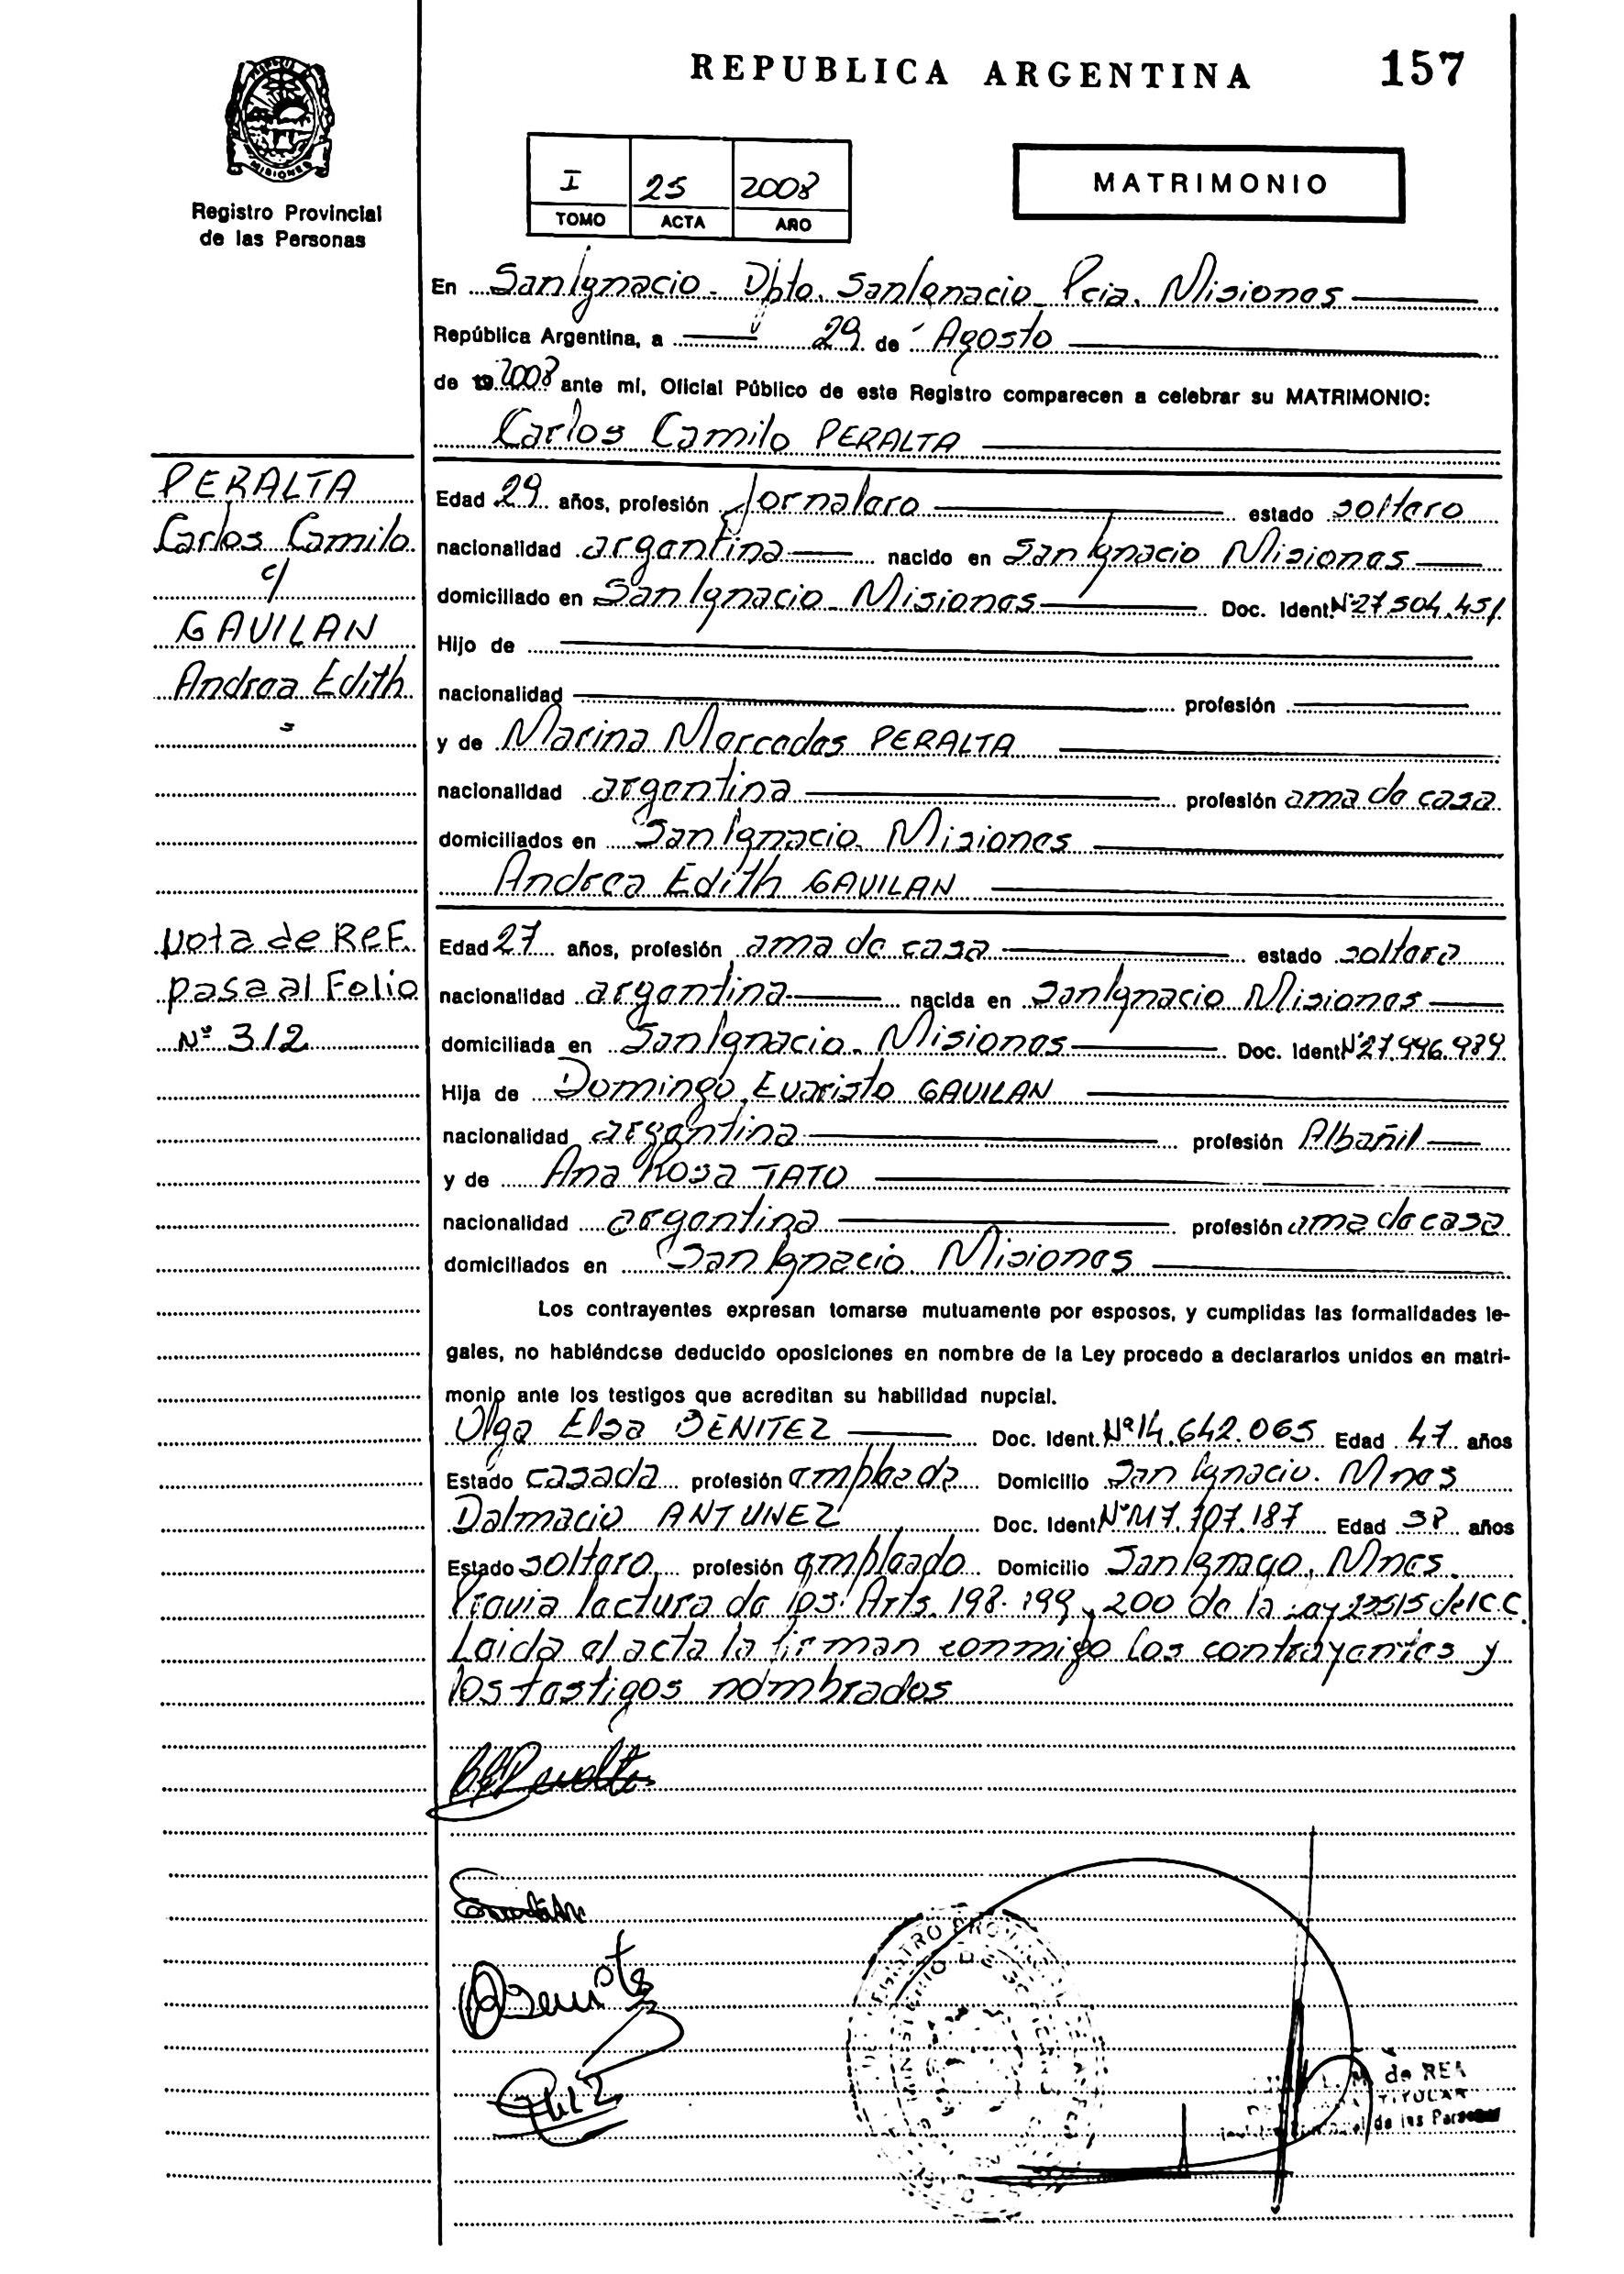 REPUBLICA ARGENTINA 157
MISIONES
Registro Provincial
de las Personas
I 25 2008
TOMO ACTA AÑO
MATRIMONIO
En San Ignacio - Dpto. San Ignacio - Pcia. Misiones
República Argentina, a 29 de Agosto
de 19 2008 ante mí, Oficial Público de este Registro comparecen a celebrar su MATRIMONIO:
Carlos Camilo PERALTA
PERALTA
Carlos Camilo
c/
GAVILAN
Andrea Edith
Edad 29 años, profesión Jornalero estado soltero
nacionalidad argentina nacido en San Ignacio Misiones
domiciliado en San Ignacio - Misiones Doc. Ident. Nº 27.504.451
Hijo de
nacionalidad profesión
y de Marina Mercedes PERALTA
nacionalidad argentina profesión ama de casa
domiciliados en San Ignacio. Misiones
Andrea Edith GAVILAN
Nota de Ref.
pasa al Folio
Nº 312
Edad 27 años, profesión ama de casa estado soltera
nacionalidad argentina nacida en San Ignacio Misiones
domiciliada en San Ignacio - Misiones Doc. Ident Nº 27.996.989
Hija de Domingo Evaristo GAVILAN
nacionalidad argentina profesión Albañil
y de Ana Rosa TATO
nacionalidad argentina profesión ama de casa
domiciliados en San Ignacio. Misiones
Los contrayentes expresan tomarse mutuamente por esposos, y cumplidas las formalidades le-
gales, no habiéndose deducido oposiciones en nombre de la Ley procedo a declararlos unidos en matri-
monio ante los testigos que acreditan su habilidad nupcial.
Olga Elsa BENITEZ Doc. Ident. Nº 14.642.065 Edad 47 años
Estado casada profesión empleada Domicilio San Ignacio. Mnes
Dalmacio ANTUNEZ Doc. Ident Nº M7.707.187 Edad 58 años
Estado soltero profesión empleado Domicilio San Ignacio, Mnes.
Previa lectura de los Arts. 198. 199 y 200 de la Ley 23515 del C.C.
Leida el acta la firman conmigo los contrayentes y
los testigos nombrados
de las Personas